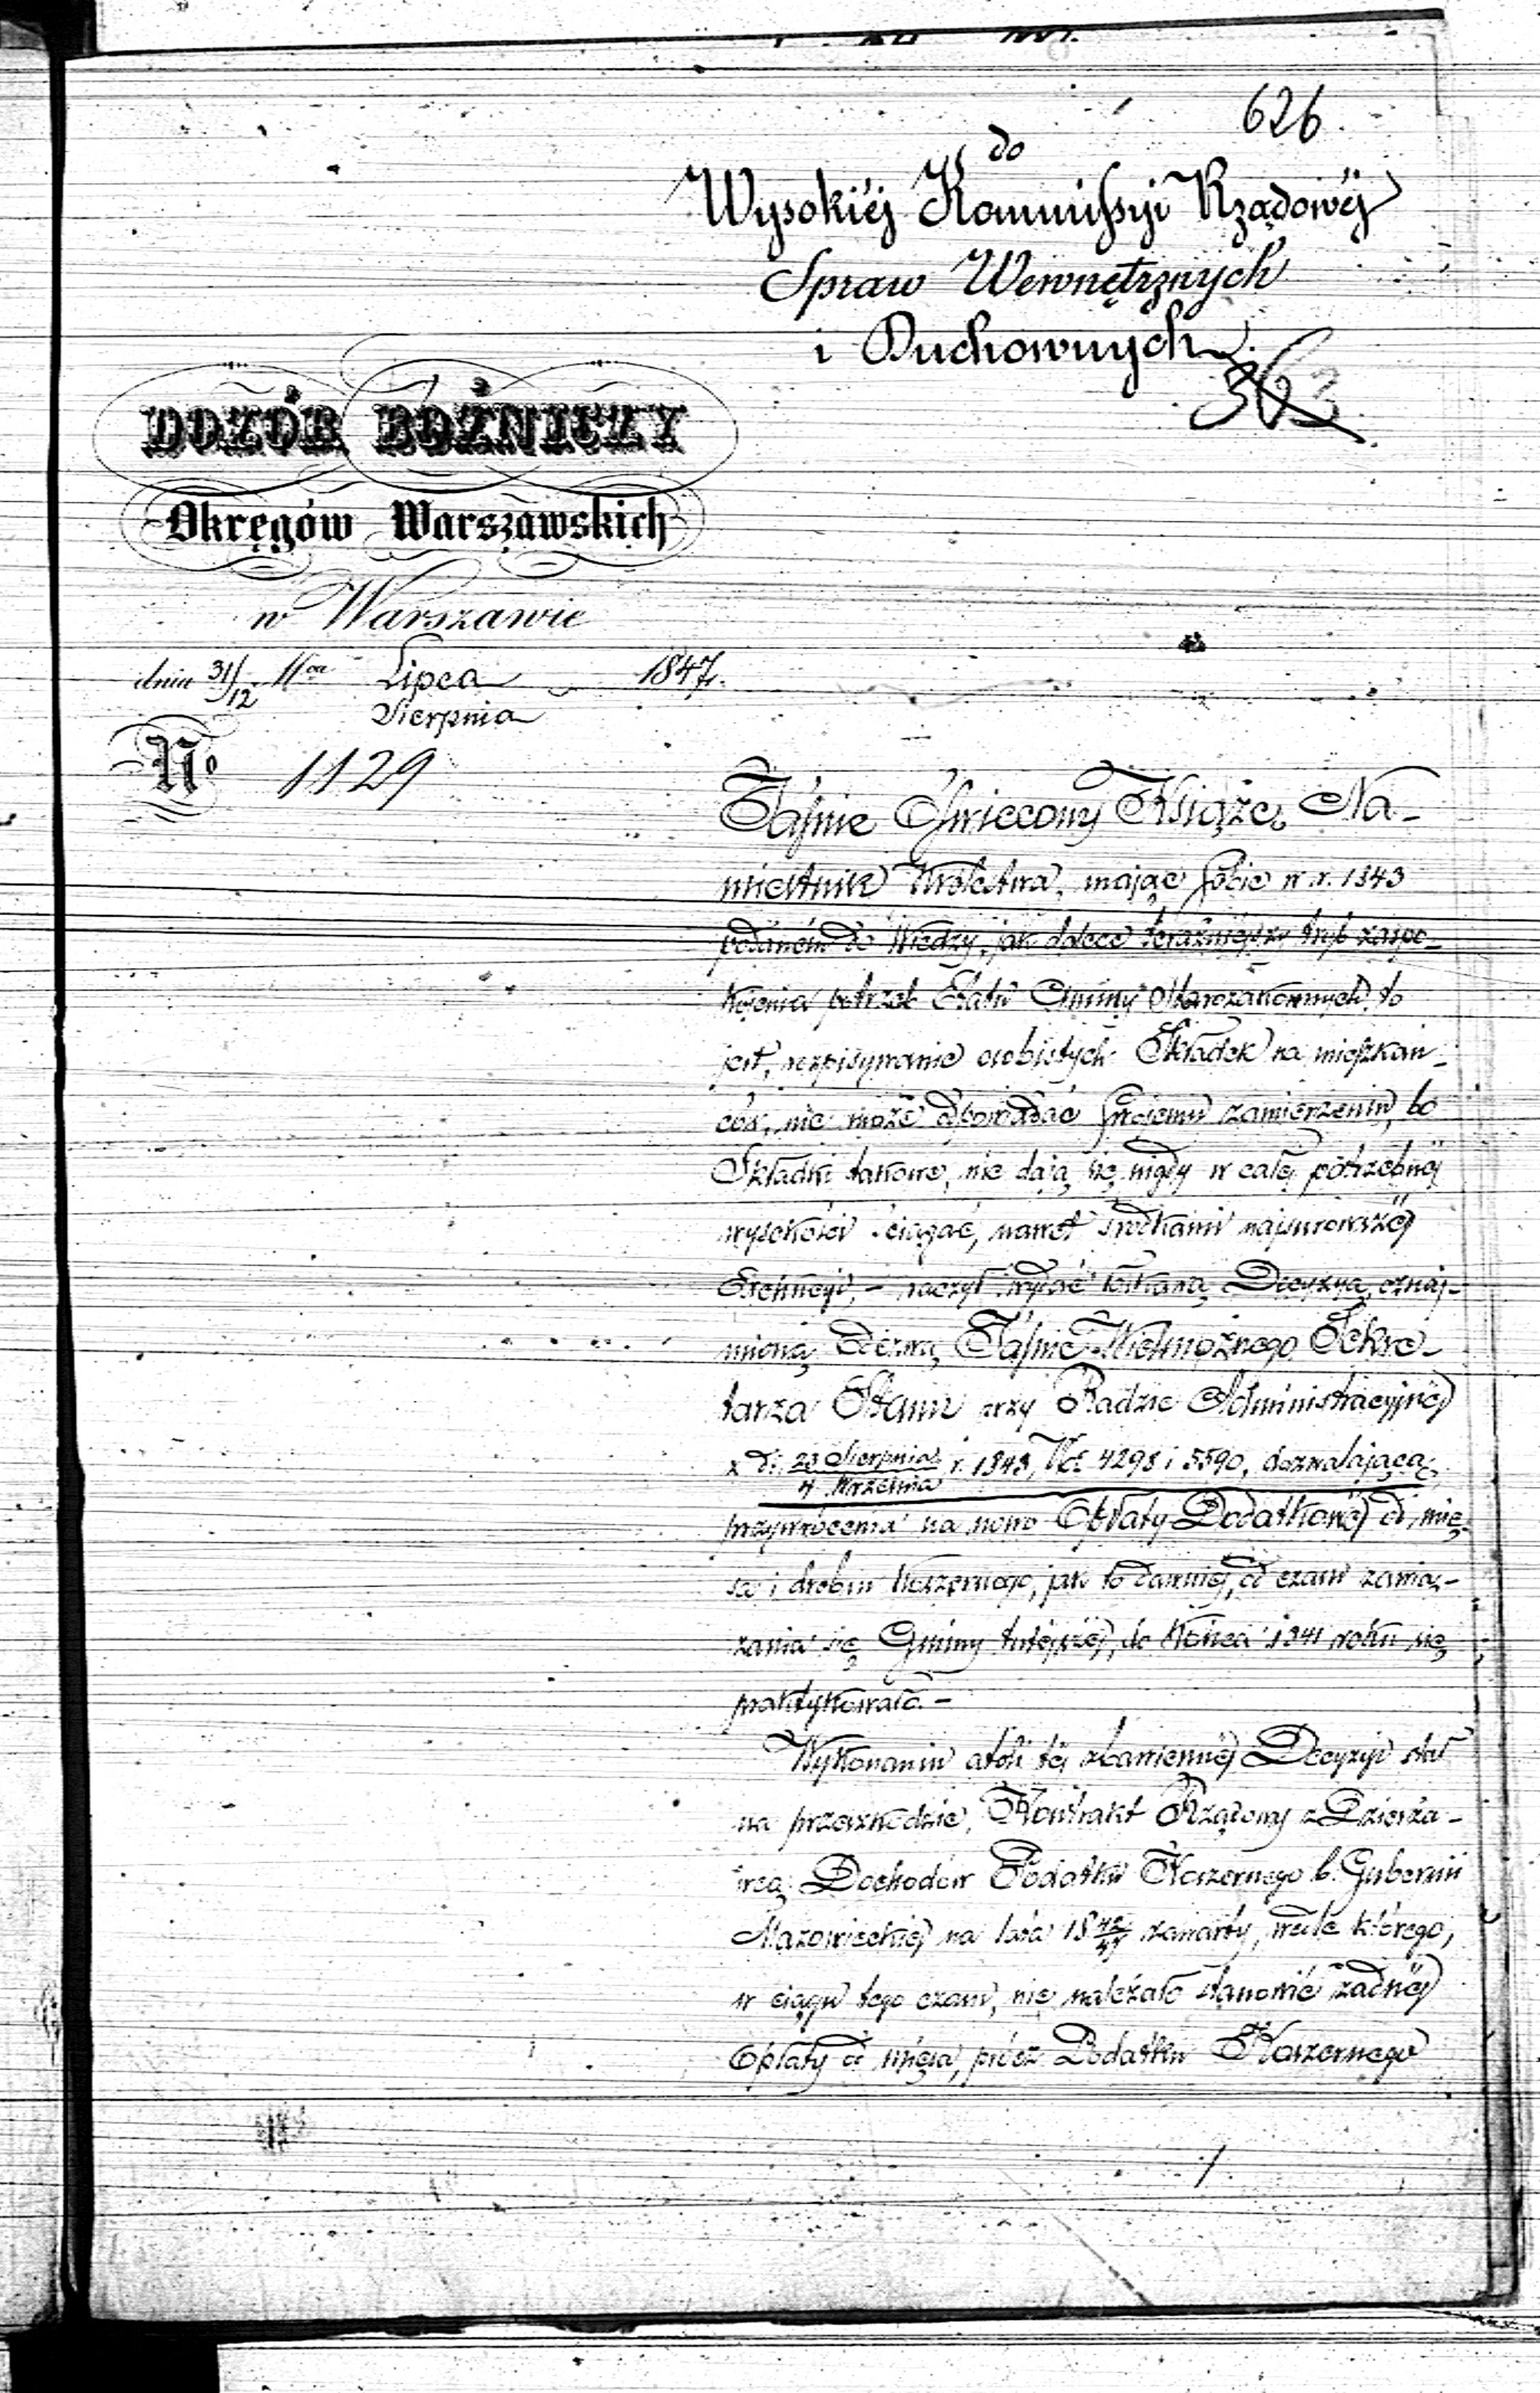 626.
do
Wysokiéj Kommissyi Rządowéj
Spraw Wewnętrznych
i Duchownych.
363
DOZÓR BOŻNICZY
Okręgów Warszawskich
w Warszawie
dnia 31/12 Lipca 1847.
Sierpnia
No 1129
Jaśnie Oświecony Książę, Na-
miestnik Królestwa, mając sobie w r. 1843
podaném do wiedzy, jak dalece teraźniejszy tryb zaspo-
kojenia potrzeb Etatu Gminy Starozakonnych, to
jest, rozpisywanie osobistych Składek na mieszkań-
ców, nie może odpowiadać swojemu zamierzeniu, bo
Składki takowe, nie dają się nigdy w całéj potrzebnéj
wysokości ściągać, nawet środkami najsurowszéj
Exekucyi, – raczył wydać łaskawą Decyzyą, oznaj-
mioną Odezwą Jaśnie Wielmożnego Sekre-
tarza Stanu przy Radzie Administracyjnéj
z d. 23 Sierpnia / 4 Września r. 1843, No 4298 i 5590, dozwalającą
przywrócenia na nowo Opłaty Dodatkowéj od mię-
sa i drobiu koszernego, jak to dawniéj, od czasu zawią-
zania się Gminy tutéjszéj, do końca 1841 roku się
praktykowało. –
Wykonaniu atoli téj zbawiennéj Decyzyi stał
na przeszkodzie, Kontrakt Rządowy z Dzierża-
wcą Dochodów Podatku Koszernego b. Gubernii
Mazowieckiéj na lata 18 zawarty, wedle którego,
w ciągu tego czasu, nie należało stanowić żadnéj
Opłaty od mięsa, prócz Podatku Koszernego